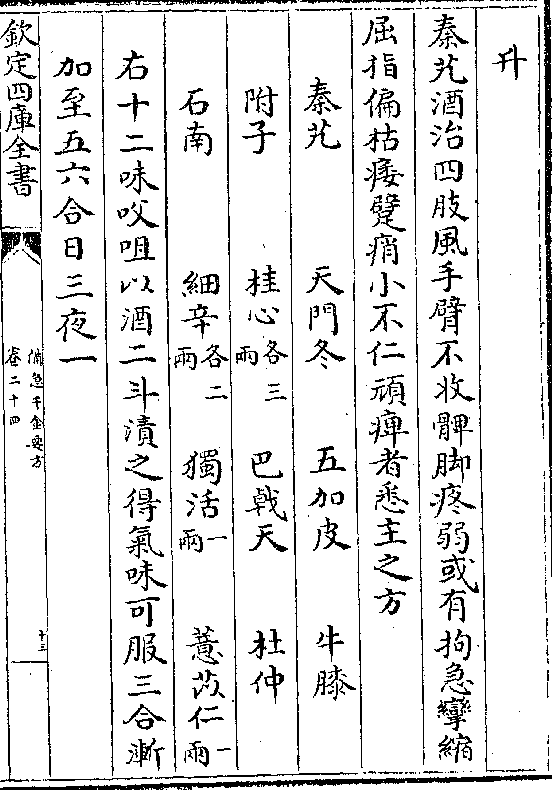 升
秦艽酒治四肢風手臂不收髀脚疼弱或有拘急攣縮
屈指偏枯痿躄痟小不仁頑痺者悉主之方
秦艽 天門冬 五加皮 牛膝
附子 桂心各三兩 巴戟天 杜仲
石南 細辛各二兩 獨活一兩 薏苡仁一兩
右十二味㕮咀以酒二斗漬之得氣味可服三合漸
加至五六合日三夜一
欽定四庫全書
備急千金要方
卷二十四
十三